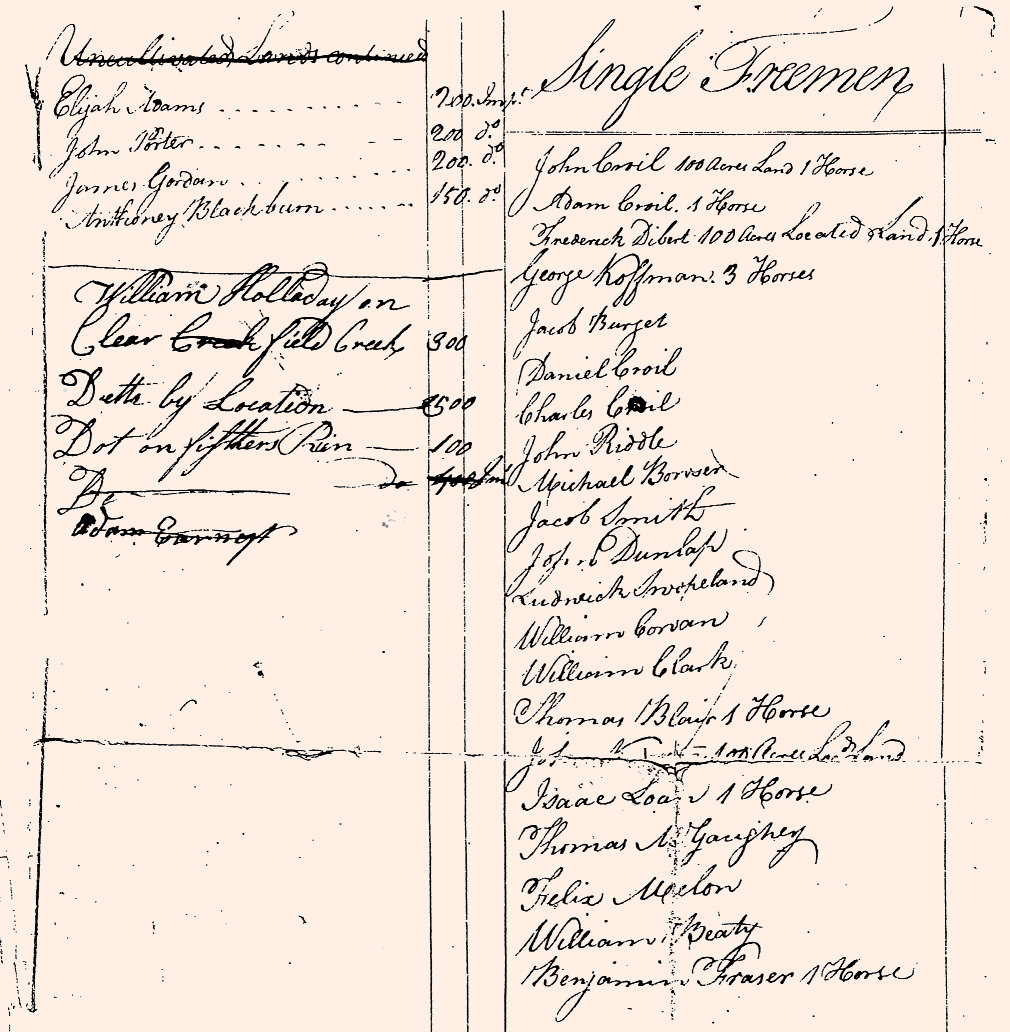 Uncultivated Lands continued
Elijah Adams 200. Imp.t
John Porter 200 d.o
James Gordan 200. d.o
Anthoney Blackburn 150. d.o
William Holladay on
Clear Creek field Creek 300
Ditto by Location 500
Dot on fifthers Run 100
Do do 400
Adam Earnest
Single Freemen
John Croil 100 Acres Land 1 Horse
Adam Croil. 1 Horse
Frederick Dibert 100 Acres Located Land. 1 Horse
George Koffman. 3 Horses
Jacob Burget
Daniel Croil
Charles Croil
John Riddle
Michael Borvser
Jacob Smith
John Dunlap
Ludwick
William Corvan
William Clark
Thomas Blair 1 Horse
100 Acres Loc.d Land
Isaac Loan 1 Horse
Thomas McGaughey
Felix Melon
William Beaty
Benjamin Fraser 1 Horse